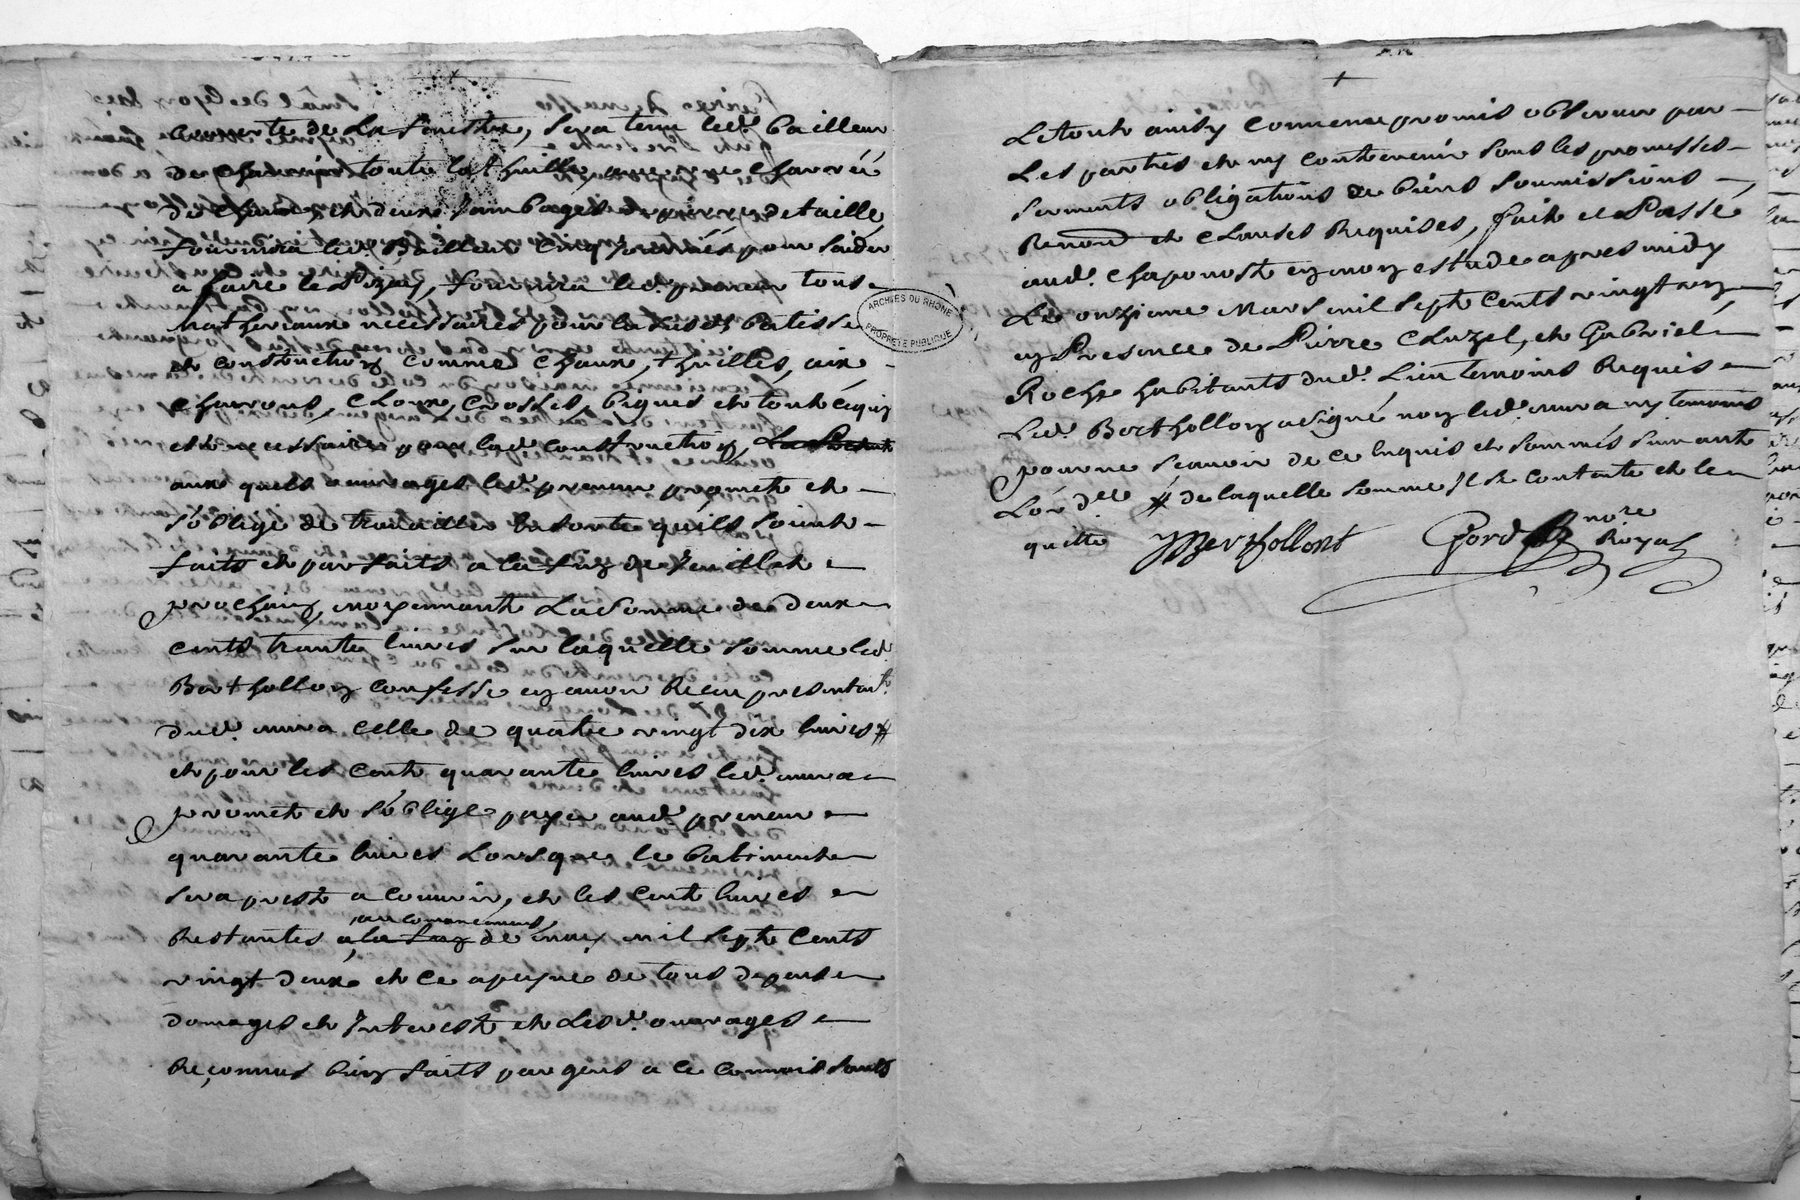 couverte de La fenestre, sera tenu led. bailleur
de charier toute la thuille avec une charréé
de chaux et deux jambages de pierre de taille
fournira led. Bailleur cinq journéés pour aider
a faire le Pizay, fournira led. preneur tous
matheriaux necessaires pour lad. bâtisse
et construction comme chaux, thuilles, aix
chevrons, cloux, crosses, bigues et tout ce quy
est necessaire pour lad. construction,
aux quels ouvrages led. preneur promet et
s'oblige de travailler de sorte quils soint
faits et parfaits a la fin de Juillet
prochain, moyennant La somme de deux
cents trante livres sur laquelle somme led.
Berthollon confesse en avoir Receu presentmt.
dud. mura celle de quatre vingt dix livres #
et pour les cent quarante livres led. mura
promet et s'oblige payer aud. preneur
quarante livres Lorsque le batiment
sera prest a couvrir, et les cent livres
au comancement
Restantes a la fin de may mil sept cents
vingt deux et ce a peyne de tous depans
domages et Interest et Lesd. ouvrages
Reconnus bien faits par gens a ce connoissants
ARCHIVES DU RHÔNE
PROPRIÉTÉ PUBLIQUE
Le tout ainsy convenu promis observer par
Les parties et ny contrevenir sous les promesses
serments obligations de biens soumissions
Renond. et clauses Requises, fait et Passé
aud. chaponost en mon estude apres midy
Le onzieme Mars mil sept cents vingt un
en Presence de Pierre Cluzel, et Gabriel
Roche habitants dud. Lieu temoins Requis
Led. Berthollon a signé non led. mura ny temoins
pour ne sçavoir de ce enquis et sommés suivant
L'ord.ce # de laquelle somme Il se contente et le
quitte JBerthollont Gord nore Royal